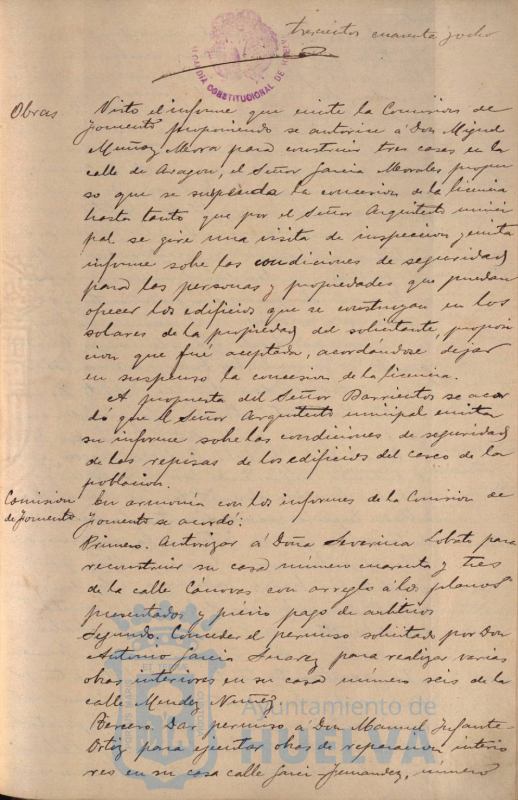 trescientos cuarenta y ocho
ALCALDIA CONSTITUCIONAL DE HUELVA
Obras
Visto el informe que emite la Comision de
Fomento proponiendo se autorice á Don Miguel
Muñoz Morra para construir tres casas en la
calle de Aragon, el Señor Garcia Morales propu-
so que se suspenda la concesion de la licencia
hasta tanto que por el Señor Arquitecto munici
pal se gire una visita de inspeccion y emita
informe sobre las condiciones de seguridad
para las personas y propiedades que puedan
ofrecer los edificios que se construyan en los
solares de la propiedad del solicitante, proposi-
cion que fué aceptada, acordándose dejar
en suspenso la concesion de la licencia.
A propuesta del Señor Barrientos se acor
dó que el Señor Arquitecto municipal emita
su informe sobre las condiciones de seguridad
de las repisas de los edificios del casco de la
poblacion.
Comision
de Fomento
En armonía con los informes de la Comision de
Fomento se acordó:
Primero. Autorizar á Doña Severina Lobato para
reconstruir su casa número cuarenta y tres
de la calle Cánovas con arreglo á los planos
presentados y prévio pago de arbitrios
Segundo. Conceder el permiso solicitado por Don
Antonio Garcia Suarez para realizar varias
obras interiores en su casa número seis de la
calle Mendez Nuñez
Tercero. Dar permiso á Don Manuel Infante
Ortiz para ejecutar obras de reparacion interio
res en su casa calle Garci-Fernandez, número
Ayuntamiento de
HUELVA